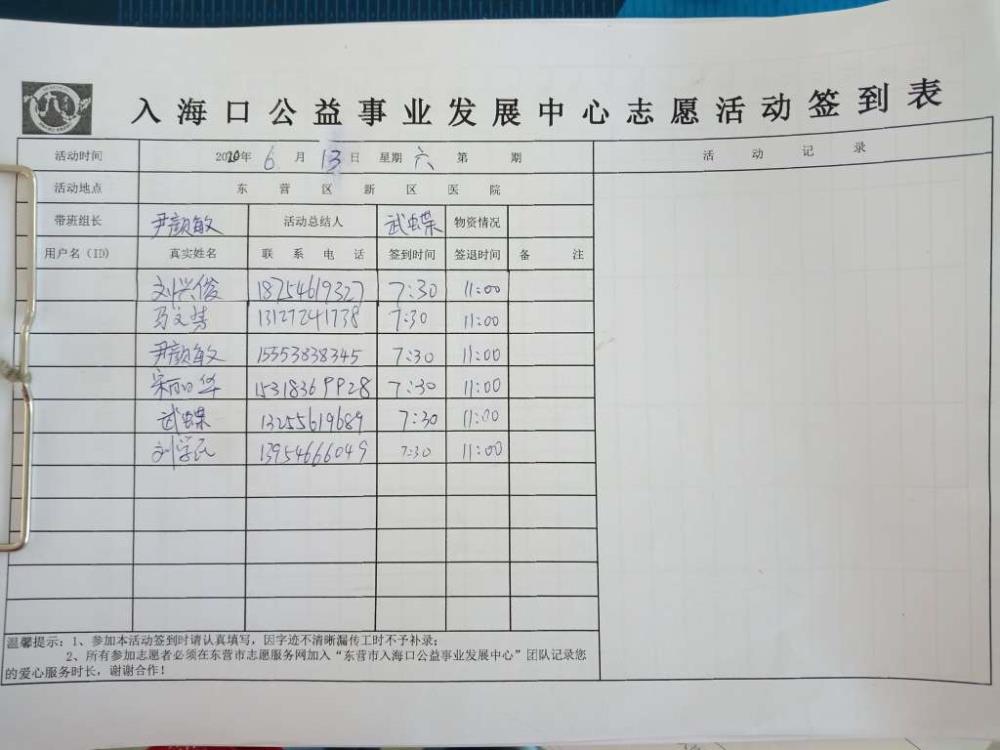 入海口公益事业发展中心志愿活动签到表
活动时间 2020年 6 月 13 日 星期 六 第 期 活动记录
活动地点 东营区新区医院
带班组长 尹颜敏 活动总结人 武蝶 物资情况
用户名(ID) 真实姓名 联系电话 签到时间 签退时间 备注
刘兴俊 18754619327 7:30 11:00
马文梦 13127241738 7:30 11:00
尹颜敏 15553838345 7:30 11:00
宋丽华 15318369928 7:30 11:00
武蝶 13255619689 7:30 11:00
刘学民 13954666049 7:30 11:00
温馨提示：1、参加本活动签到时请认真填写，因字迹不清晰漏传工时不予补录;
2、所有参加志愿者必须在东营市志愿服务网加入“东营市入海口公益事业发展中心”团队记录您
的爱心服务时长，谢谢合作!